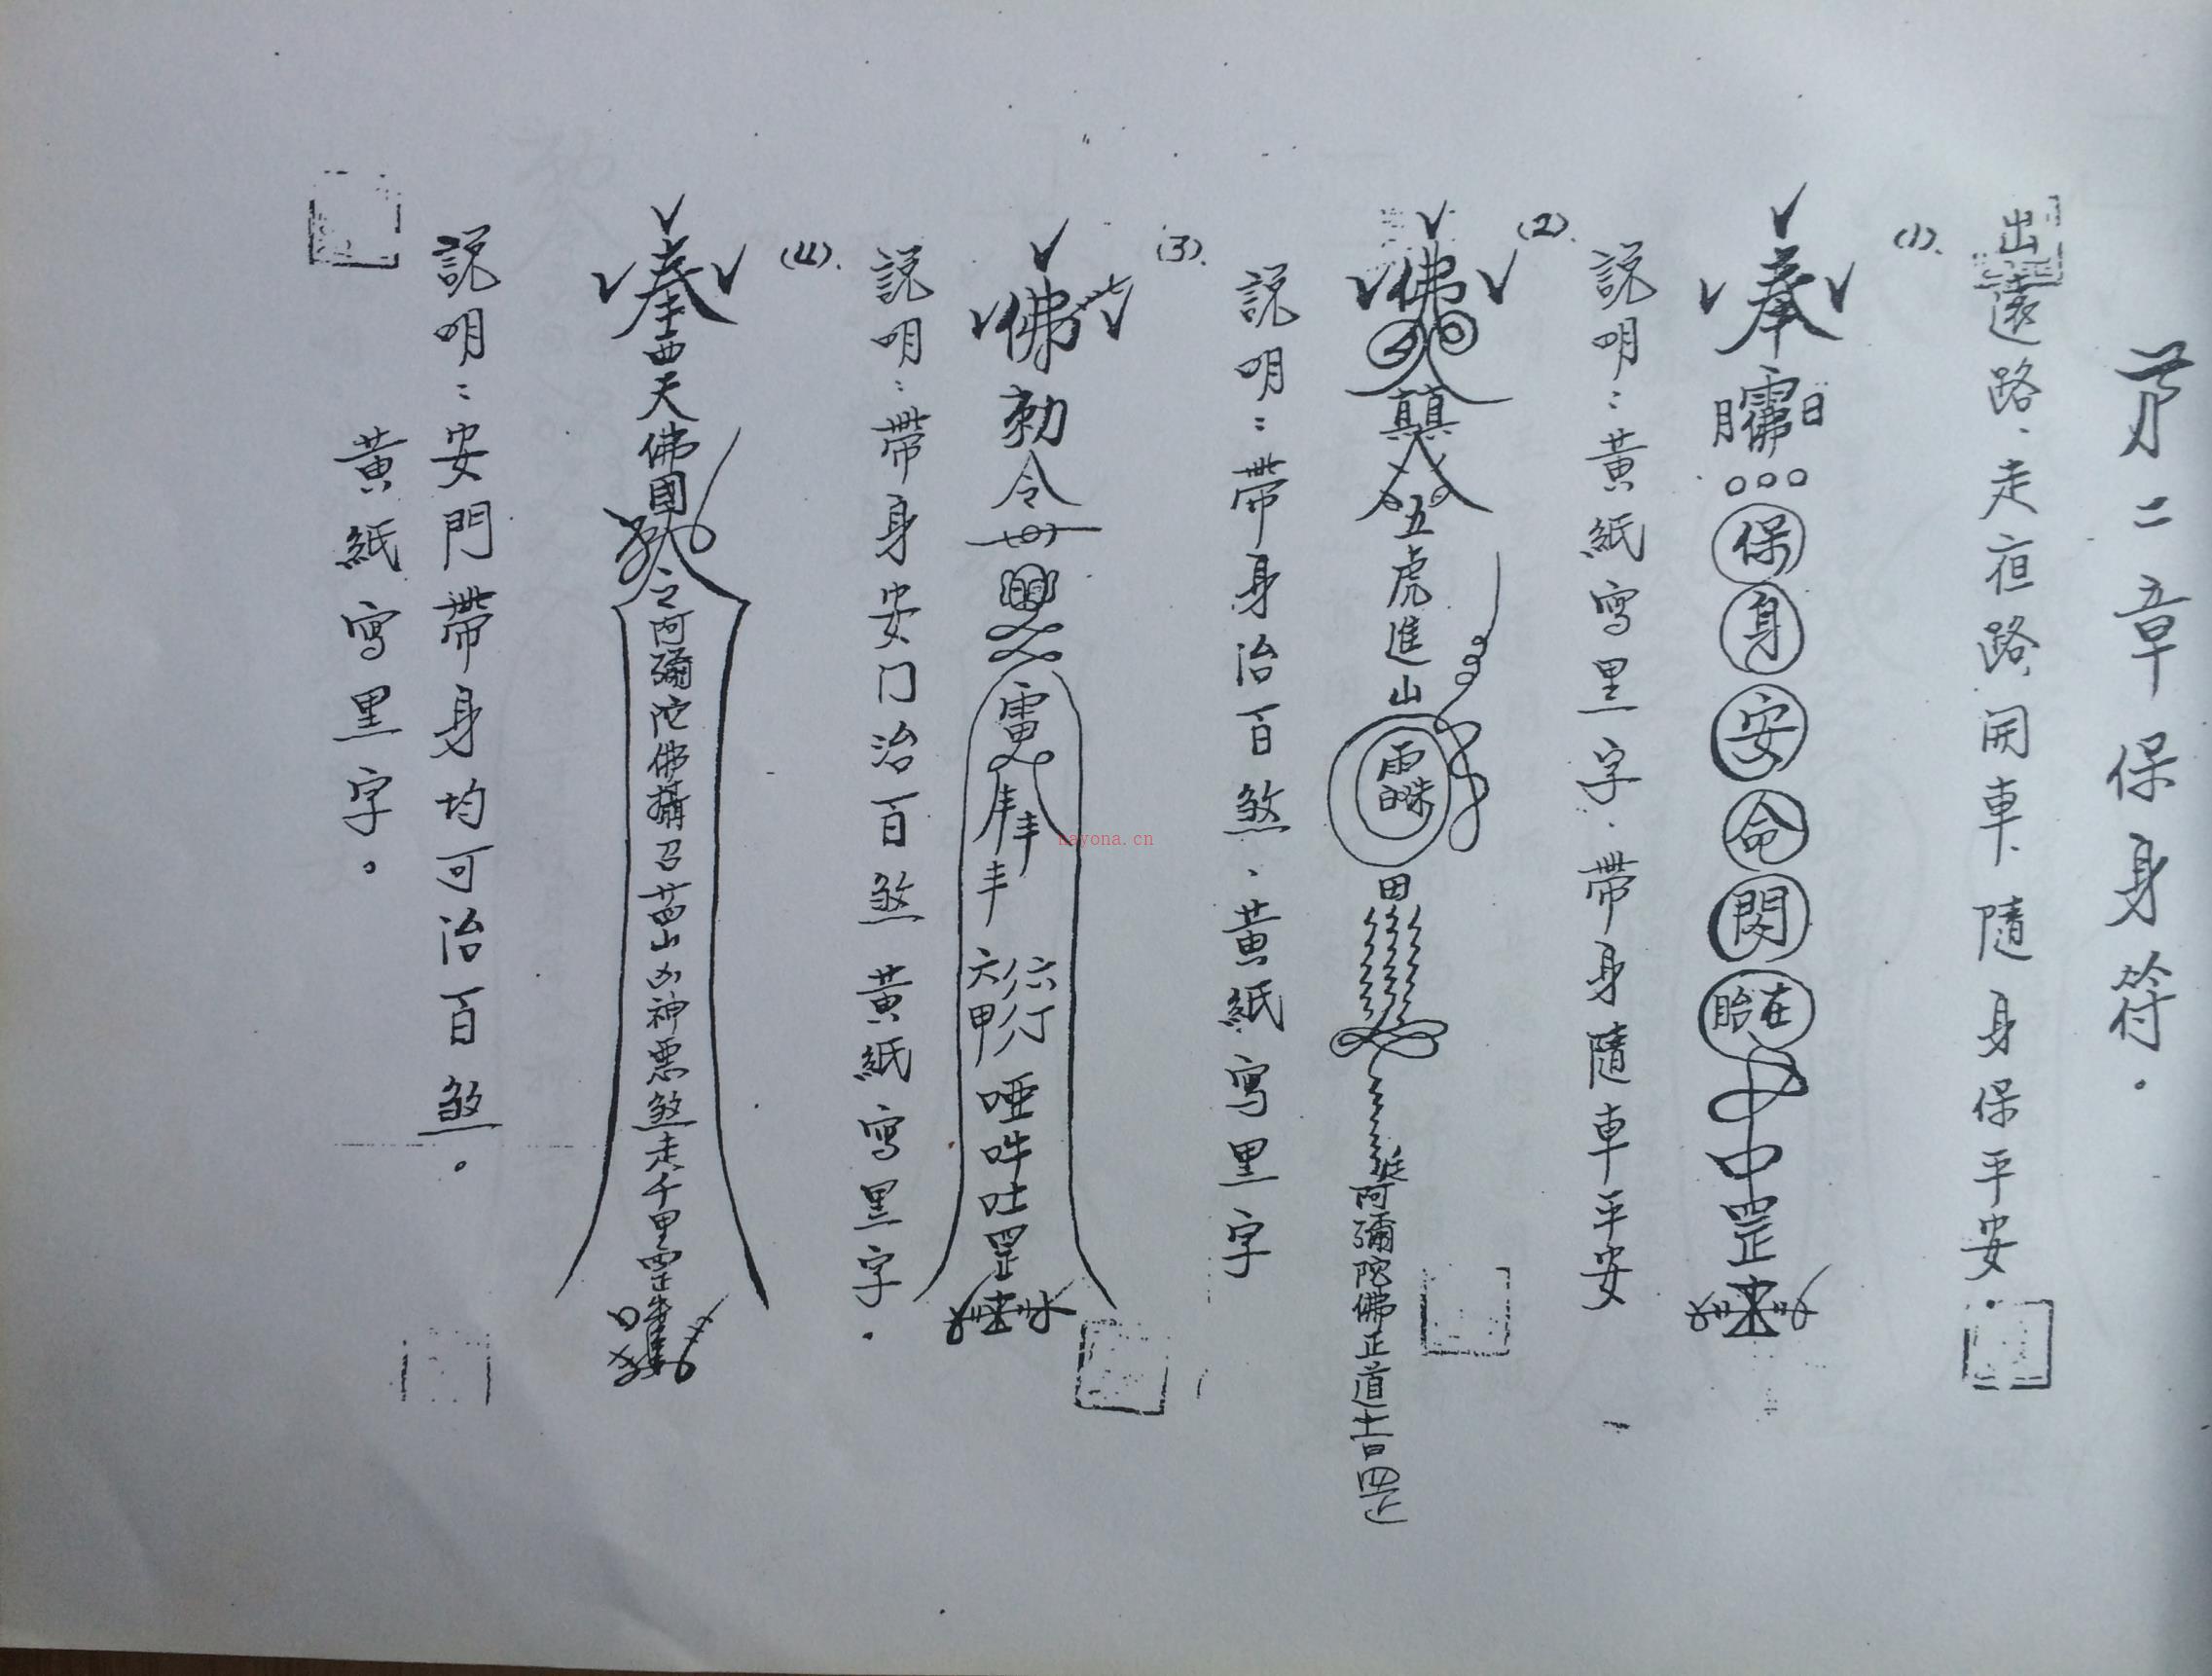 第二章保身符.
出遠路.走夜路.開車.隨身保平安.
(1).
奉
日月佛
保身安命
罡
說明:黃紙寫黑字.帶身隨車平安
(2).
佛
五虎進山
田
阿彌陀佛正道
說明:帶身治百煞.黃紙寫黑字
(3).
佛勅令
六丁六甲
啞吽吐罡
說明:帶身安门治百煞 黃紙寫黑字.
(4).
奉西天佛國
令阿彌陀佛攝召山凶神惡煞走千里
說明:安門帶身均可治百煞。
黃紙寫黑字。
nayona.cn